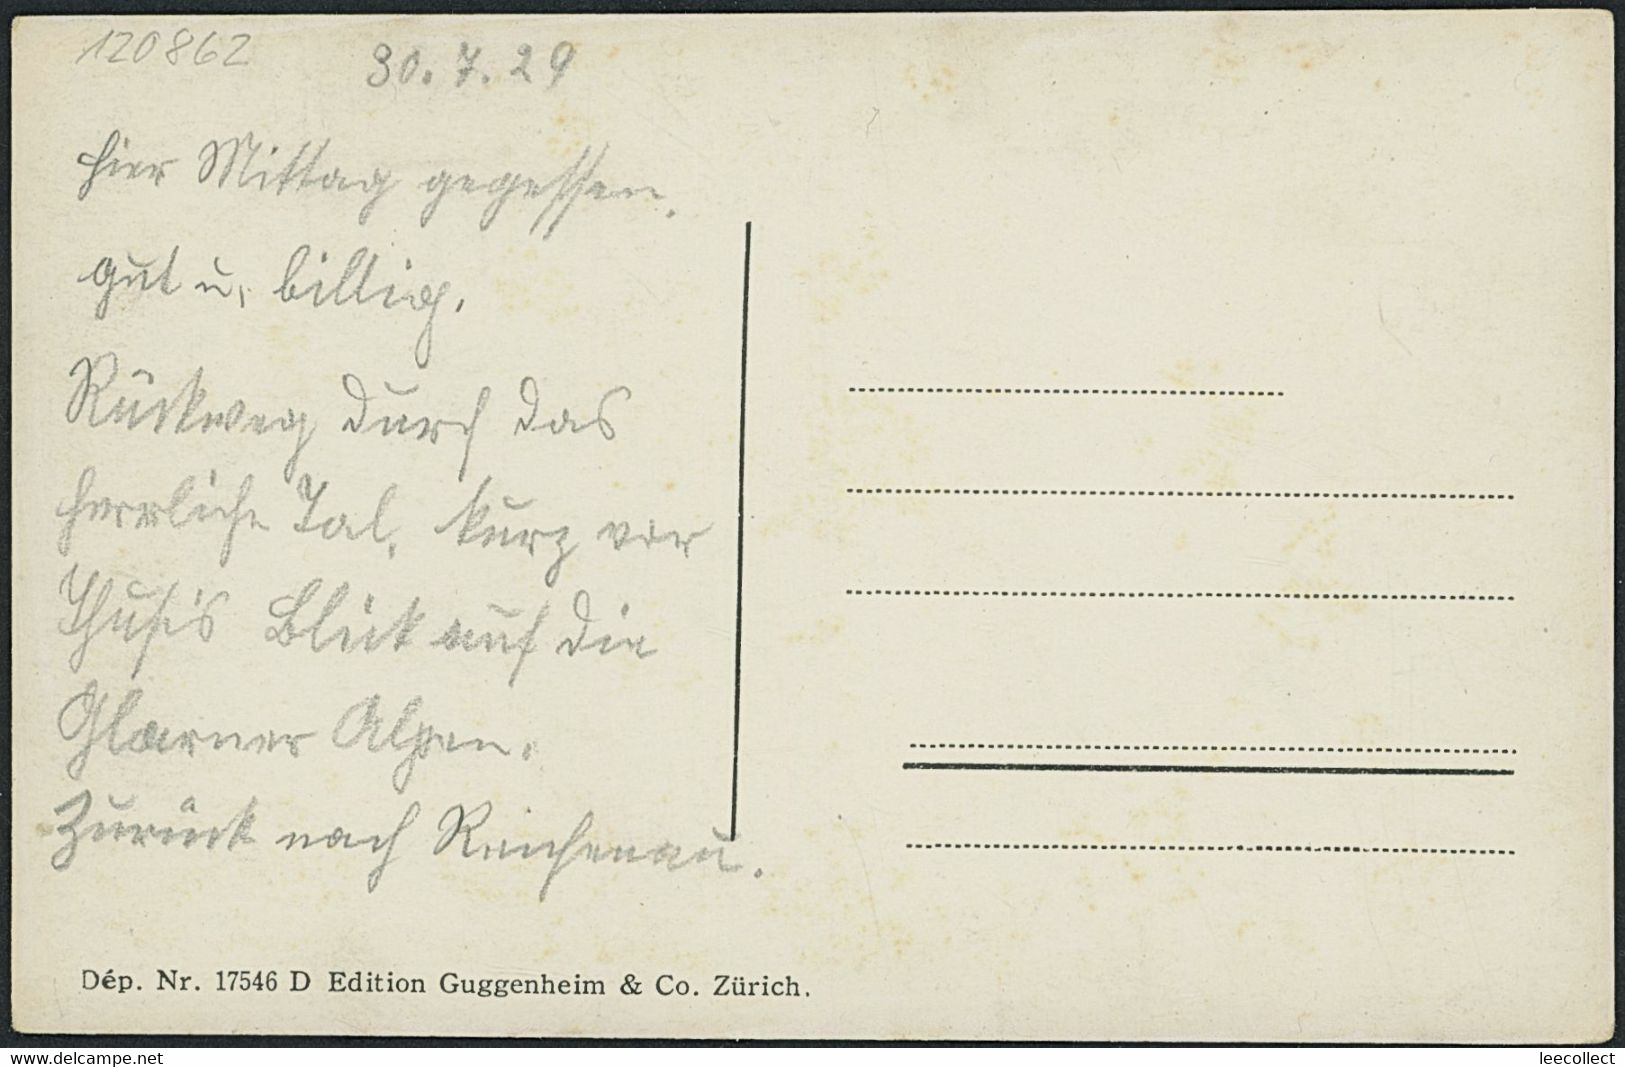 120862
30.7.29
Hier Mittag gegessen,
gut u. billig.
Rückweg durch das
herrliche Tal, kurz vor
Thusis Blick auf die
Glarner Alpen.
Zurück nach Reichenau.
Dép. Nr. 17546 D Edition Guggenheim & Co. Zürich.
www.delcampe.net
leecollect